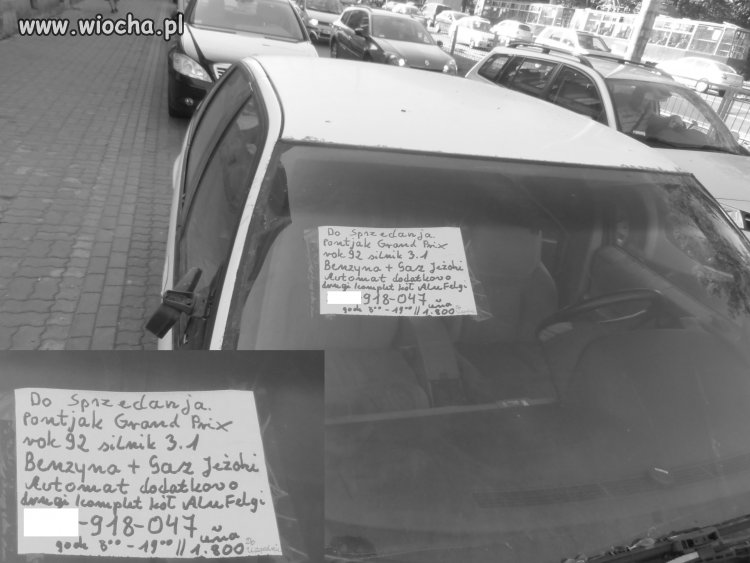 www.wiocha.pl
Do Sprzedanja.
Pontjak Grand Prix
rok 92 silnik 3.1
Benzyna + Gaz
Automat dodatkowo
drugi komplet kół AluFelgi
-918-047
godz 8⁰⁰ - 19⁰⁰ // 1.800
Do Sprzedanja.
Pontjak Grand Prix
rok 92 silnik 3.1
Benzyna + Gaz
Automat dodatkowo
drugi komplet kół AluFelgi
-918-047
godz 8⁰⁰ - 19⁰⁰ // 1.800 Do